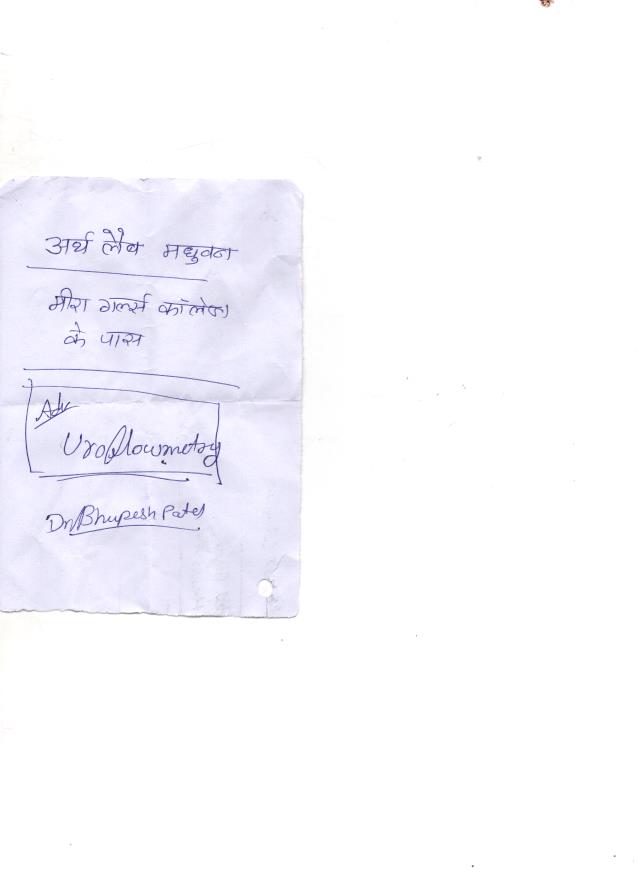 अर्थ लैब मधुवन
मीरा गर्ल्स कॉलेज
के पास
Adv
Uroflowmetry
Dr. Bhupesh Patel